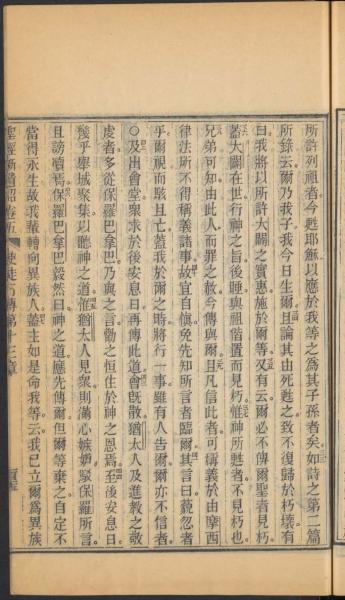 所許列祖者今甦耶穌以應於我等之為其子孫者矣如詩之第二篇
所錄云爾乃我子我今日生爾且論其由死甦之致不復歸於朽壞有
曰我將以所許大闢之實惠施於爾等又有云爾必不俾爾聖者見朽
蓋大闢在世行神之旨後睡與祖偕置而見朽惟神所甦者不見朽也
兄弟可知由此人而罪之赦今傳與爾且凡信此者可稱義於由摩西
律法所不得稱義諸事故宜自慎免先知所言者臨爾其言曰藐忽者
乎爾視而駭且亡蓋我於爾之時將行一事雖有人告爾爾亦不信者
○及出會堂眾求於後安息日再傳此道會既散猶太人及進教之敬
虔者多從保羅巴拿巴乃與之言勸之恒住於神之恩焉至後安息日
幾乎舉城聚集以聽神之道惟猶太人見眾則滿心嫉妒駁保羅所言
且謗讟焉保羅巴拿巴毅然曰神之道應先傳爾但爾等棄之自定不
當得永生故我輩轉向異族人蓋主如是命我等云我已立爾為異族
聖經新遺詔卷五 使徒行傳第十三章